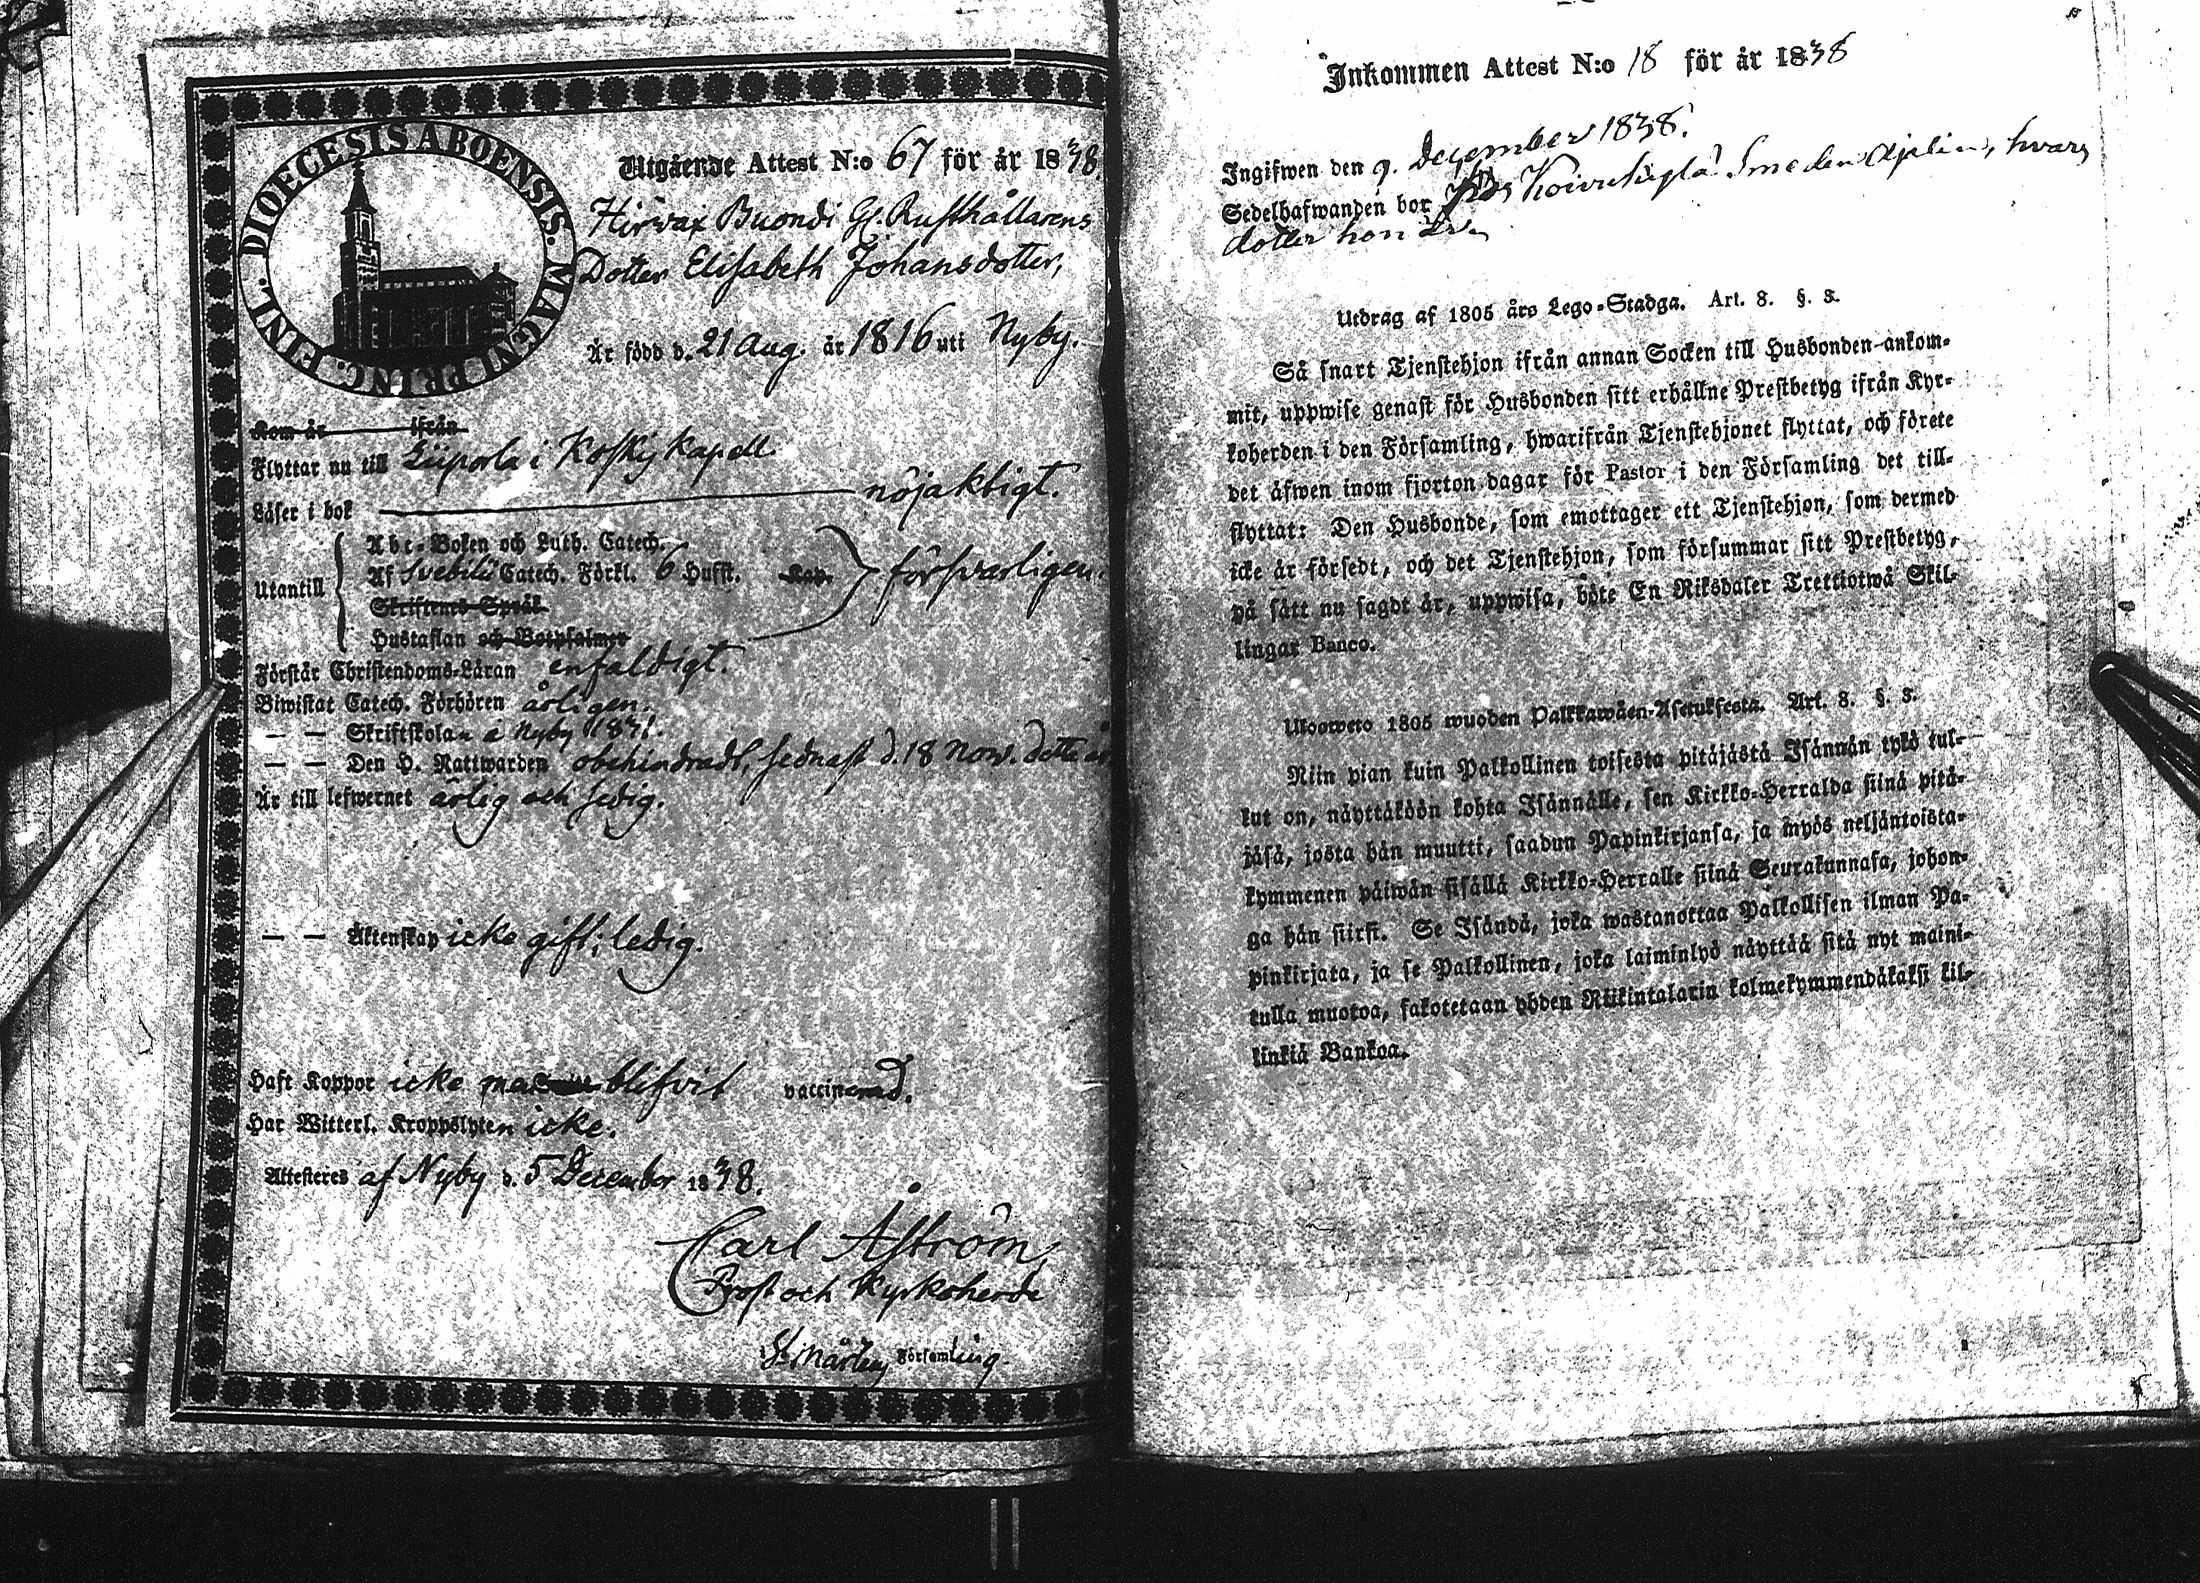 DIOECESIS ABOENSIS. MAGNI PRINC. FINL.
Utgående Attest N:o 67 för år 1838.
Hirvax Buondi Gl. Rusthållarens
Dotter Elisabeth Johansdotter,
Är född d. 21 Aug. år 1816 uti Nyby.
Kom år ifrån
Flyttar nu till Liiporla i Koskis Kapell.
Läser i bok nöjaktigt.
Utantill
Abc-Boken och Luth. Catech.
Af Svebilii Catech. Förkl. 6 Hufst. Kap. försvarligen.
Skriftenes Språk
Hustaflan och Botpsalmer
Förstår Christendoms-Läran enfaldigt.
Biwistat Catech. Förhören årligen.
— — Skriftskolan i Nyby 1831.
— — Den H. Nattwarden obehindradt, sednast d. 18 Nov. detta år
Är till lefwernet ärlig och sedig.
— — Äktenskap icke gift; ledig.
Haft Koppor icke men blifvit vaccinerad.
Har Witterl. Kroppslyten icke.
Attesteres af Nyby d. 5 December 1838.
Carl Åström
Prost och Kyrkoherde
St Mårtens Församling.
Inkommen Attest N:o 18 för år 1838
Ingifwen den 9. December 1838.
Sedelhafwanden bor Koivukylä Smeden hvars
dotter hon är
Utdrag af 1805 års Lego-Stadga. Art. 8. §. 3.
Så snart Tjenstehjon ifrån annan Socken till Husbonden ankom-
mit, uppwise genast för Husbonden sitt erhållne Prestbetyg ifrån Kyr-
koherden i den Församling, hwarifrån Tjenstehjonet flyttat, och förete
det äfwen inom fjorton dagar för Pastor i den Församling det till-
flyttat: Den Husbonde, som emottager ett Tjenstehjon, som dermed
icke är försedt, och det Tjenstehjon, som försummar sitt Prestbetyg,
på sätt nu sagdt är, uppwisa, böte En Riksdaler Trettiotwå Skil-
lingar Banco.
Ulosweto 1805 wuoden Palkkawäen-Asetuksesta. Art. 8. §. 3.
Niin pian kuin Palkollinen toisesta pitäjästä Isännän tykö tul-
kut on, näyttäköön kohta Isännälle, sen Kirkko-Herralda siinä pitä-
jäsä, josta hän muutti, saadun Papinkirjansa, ja myös neljäntoista-
kymmenen päiwän sisällä Kirkko-Herralle siinä Seurakunnasa, johon-
ga hän siirsi. Se Isändä, joka wastanottaa Palkollisen ilman Pa-
pinkirjata, ja se Palkollinen, joka laiminlyö näyttää sitä nyt maini-
tulla muotoa, sakotetaan yhden Riikintalarin kolmekymmendäkaksi kil-
linkiä Bankoa.